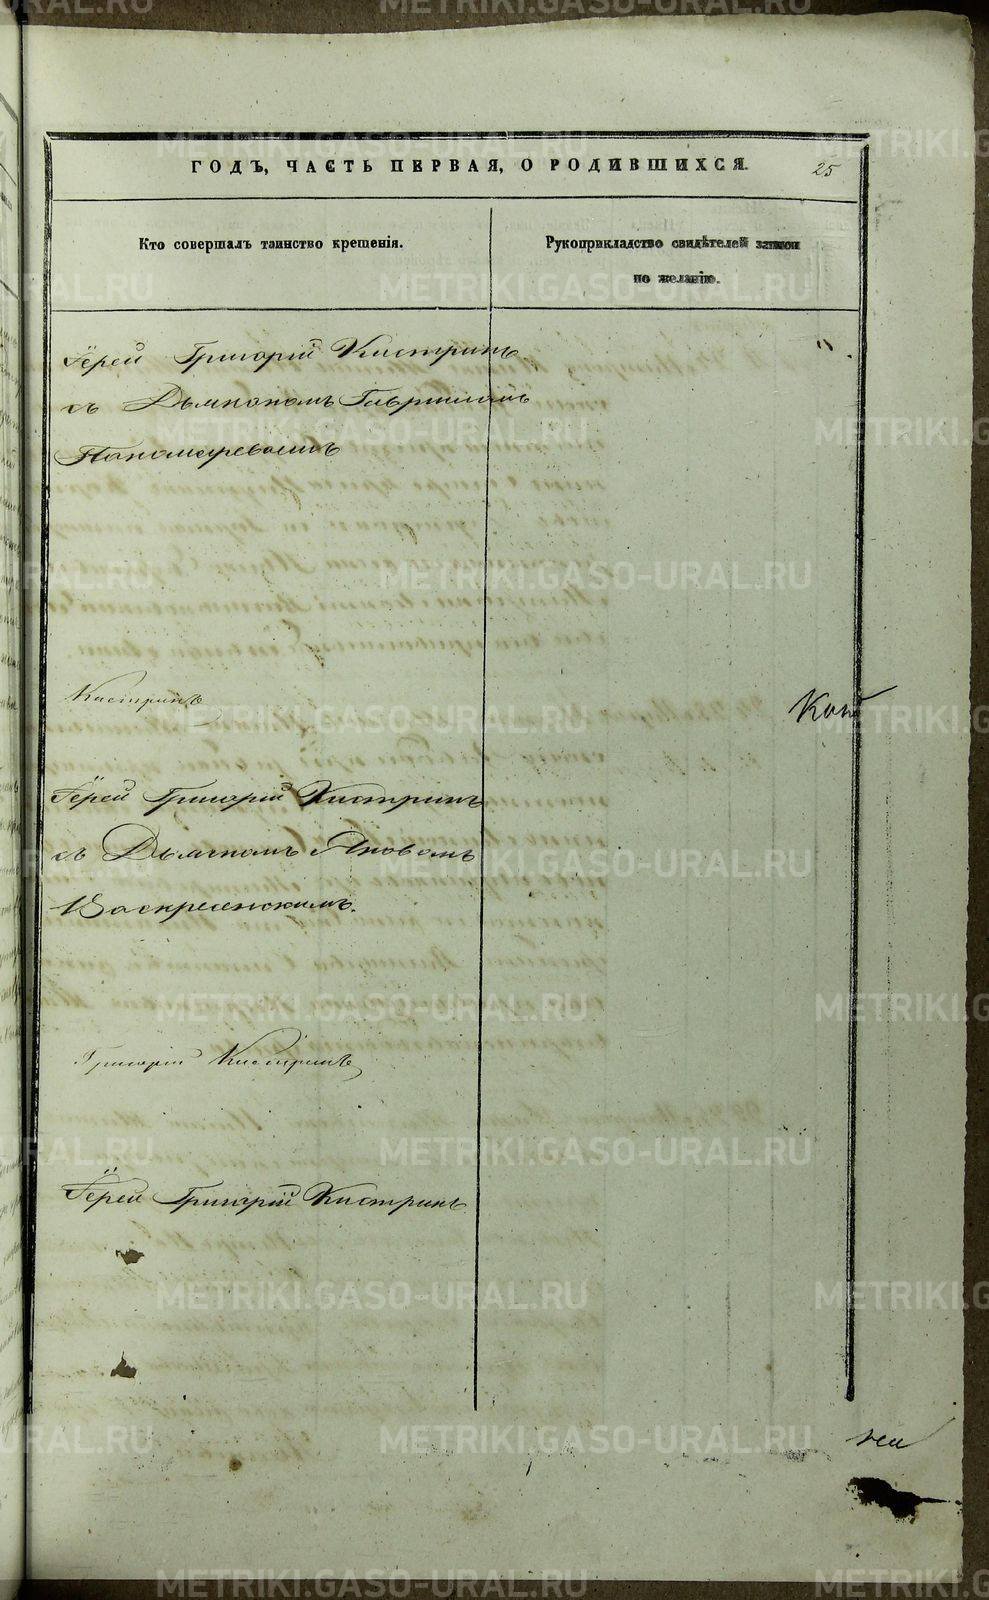 ГОДЪ, ЧАСТЬ ПЕРВАЯ, О РОДИВШИХСЯ. 25
Кто совершалъ таинство крещенія.
Рукоприкладство свидѣтелей записи
по желанію.
Іерей Григорій Кистринъ
съ Дьякономъ Гавриломъ
Пономаревымъ
Кистринъ
Кон
Іерей Григорій Кистринъ
съ Дьякономъ Яковомъ
Воскресенскимъ.
Григорій Кистринъ
Іерей Григорій Кистринъ
METRIKI.GASO-URAL.RU